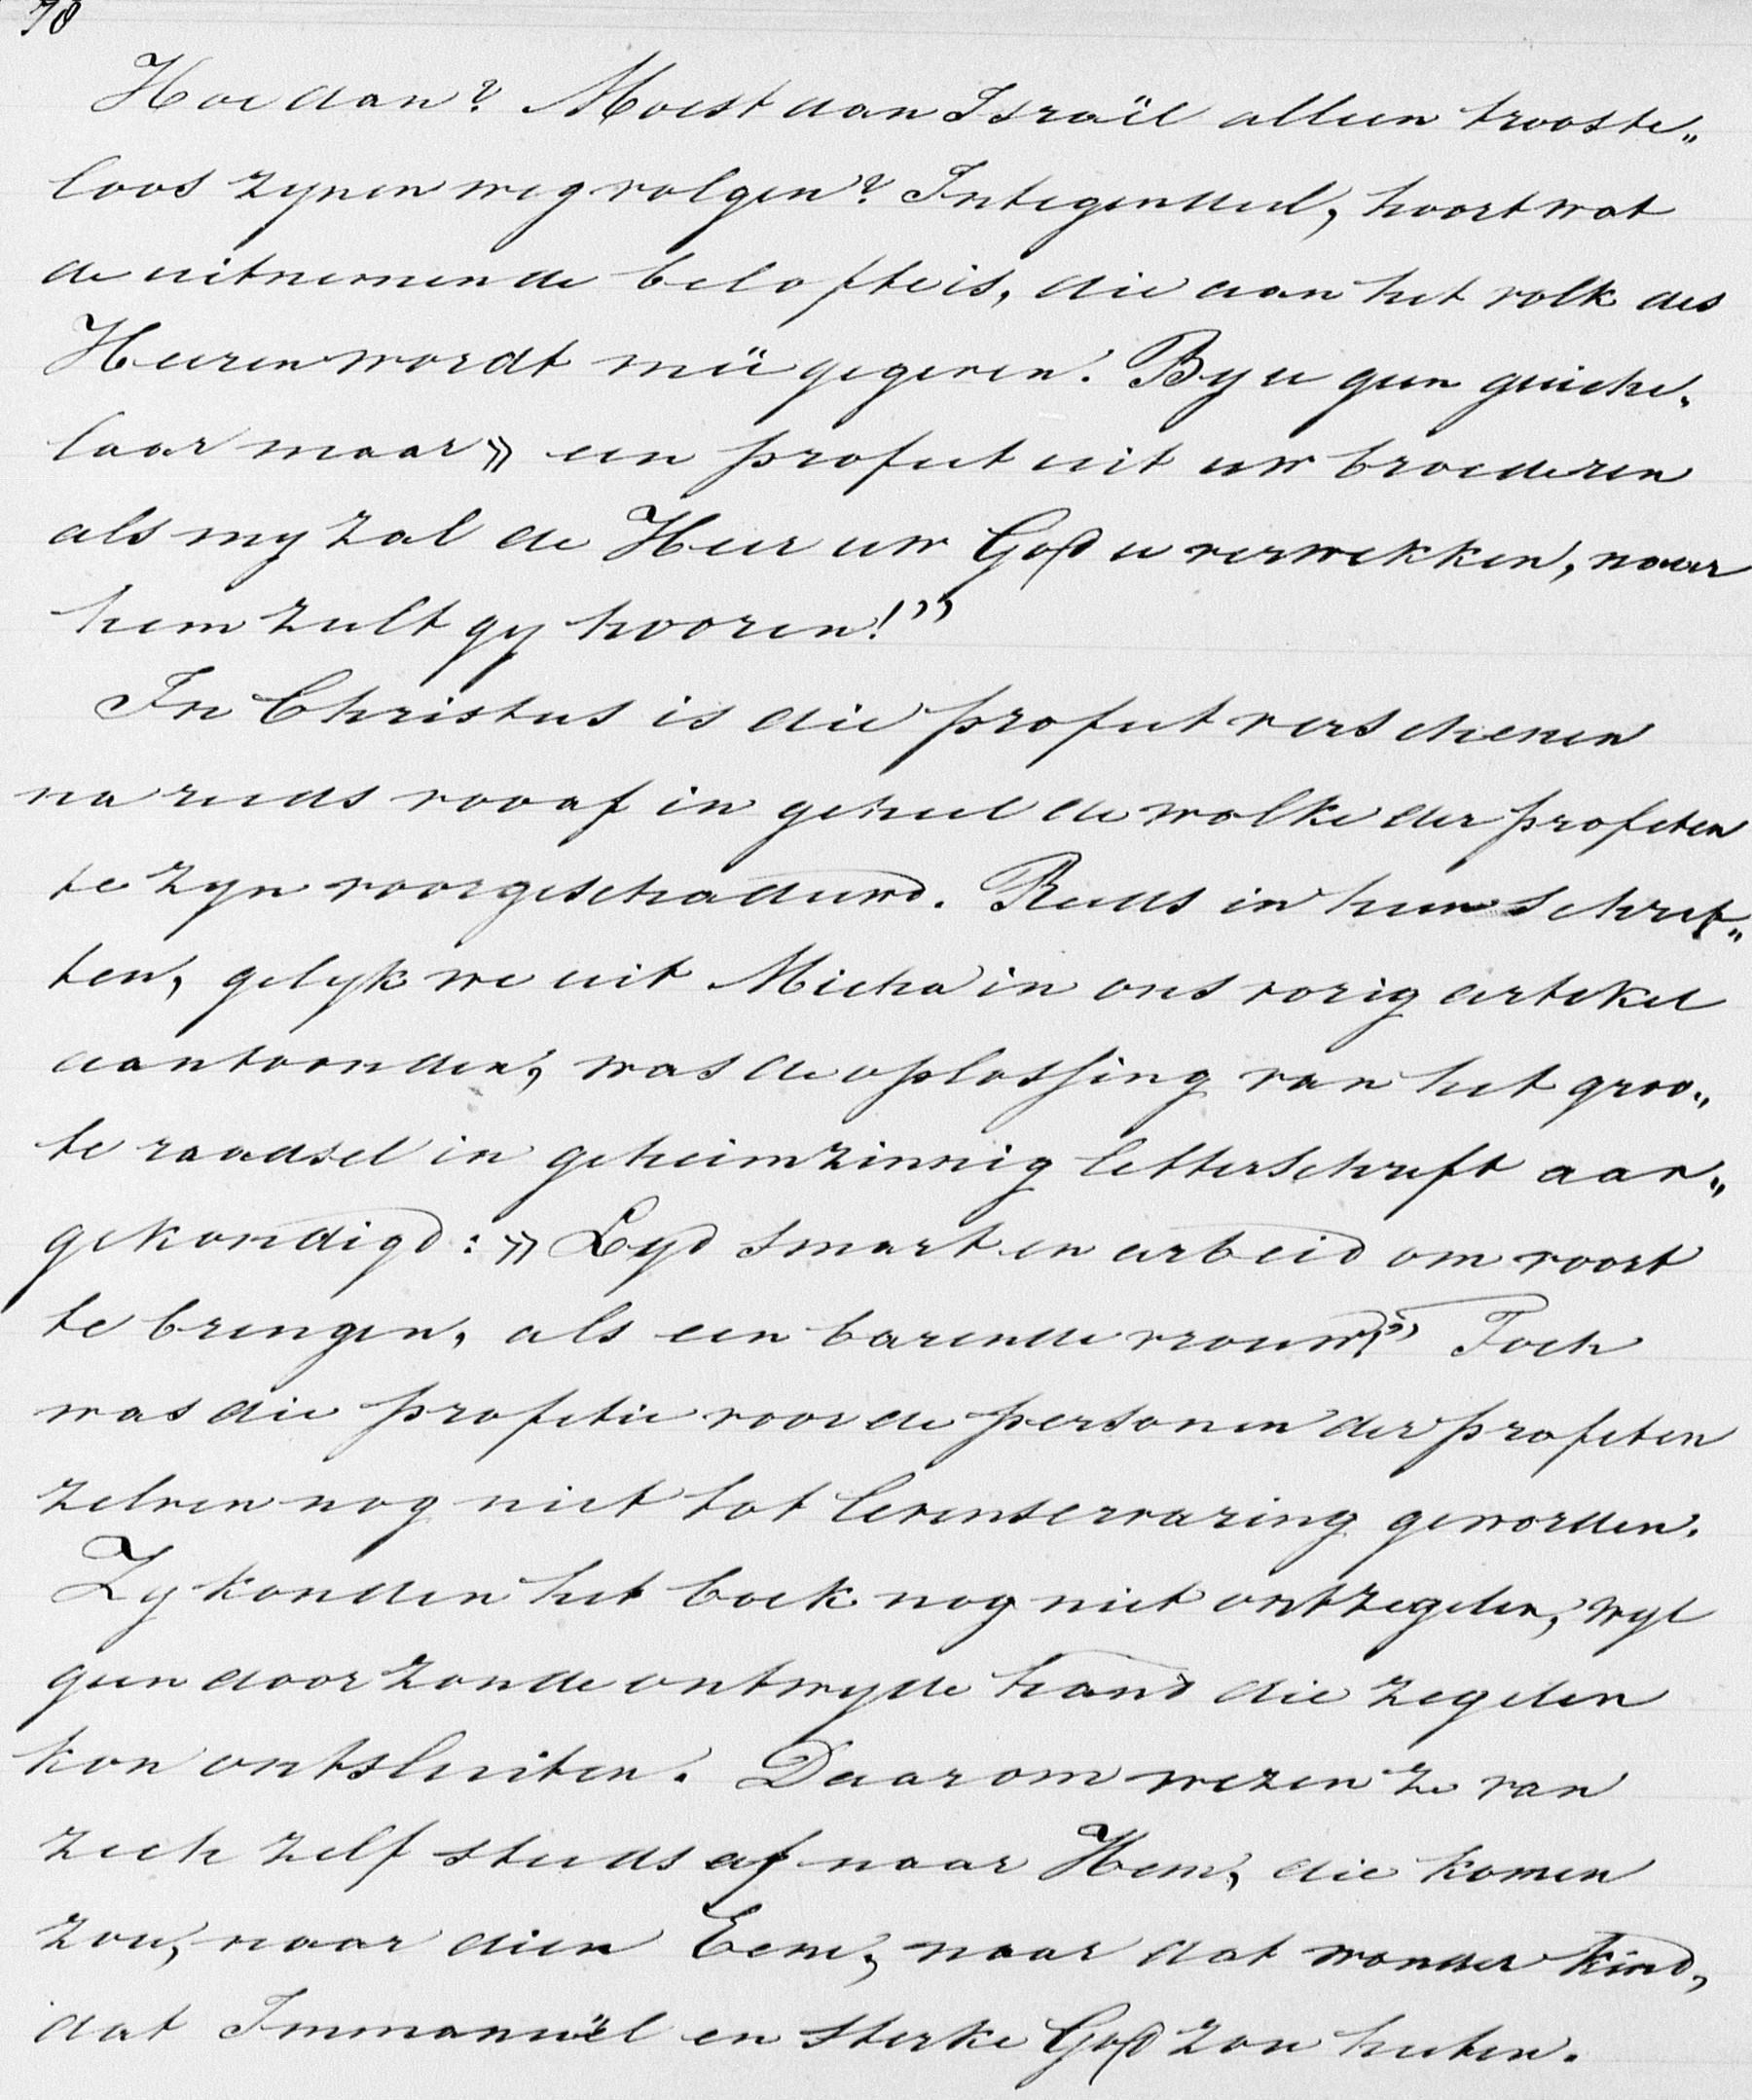 78
Hoe dan? Moest dan Israël alleen trooste„
loos zynen weg volgen? Integendeel, hoort wat
de uitnemende belofte is, die aan het volk des
Heeren wordt meê gegeven. By u geen guiche„
laar maar » een profeet uit uw broederen
als my zal de Heer uw God u verwekken, naar
hem zult gy hooren!”
In Christus is die profeet verschenen
na reeds vooaf in geheel de wolke der profeten
te zyn voorgeschaduwd. Reeds in hun schrif„
ten, gelyk we uit Micha in ons vorig artikel
aantoonden, was de oplossing van het groo„
te raadsel in geheimzinnig letterschrift aan„
gekondigd: » Lyd smart en arbeid om voort
te brengen, als een barende vrouw!” Toch
was die profetie voor de personen der profeten
zelven nog niet tot levenservaring geworden.
Zy konden het boek nog niet ontzegelen, wyl
geen door zonde ontwyde hand die zegelen
kon ontsluiten. Daarom wezen ze van
zich zelf steeds af naar Hem, die komen
zou, naar dien Eene, naar dat wonder kind,
dat Immanuël en sterke God zou heeten.